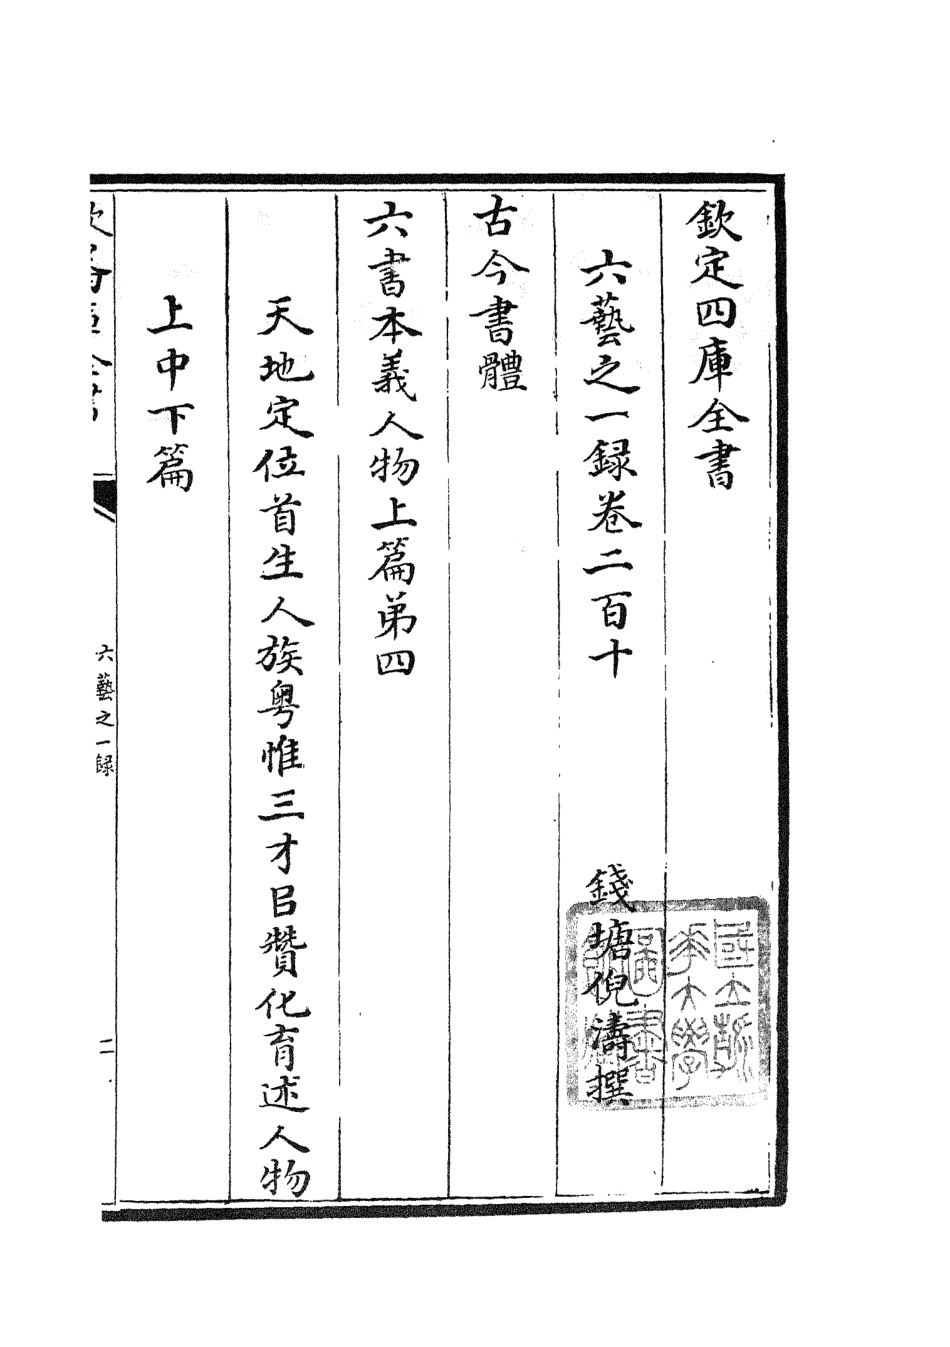 欽定四庫全書
六藝之一録卷二百十
錢塘倪濤撰
古今書體
六書本義人物上篇第四
天地定位首生人族粤惟三才㠯贊化育述人物
上中下篇
六藝之一録
二